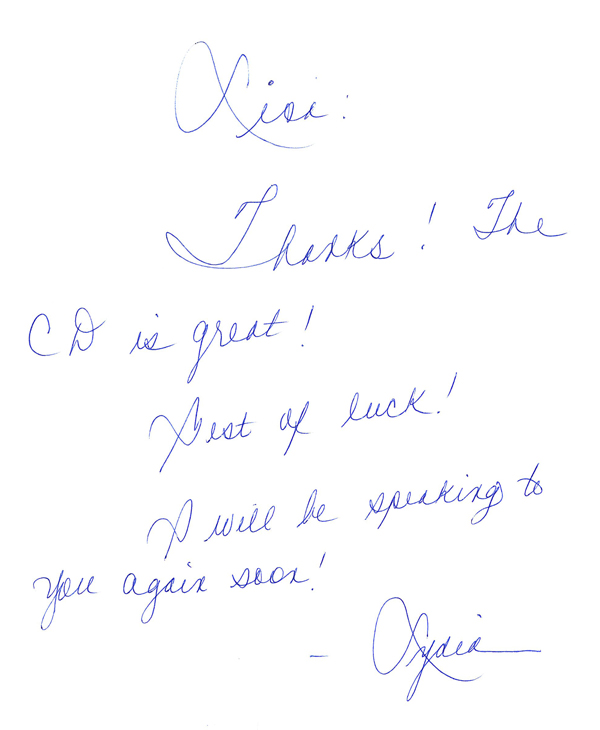 Lisa:
Thanks! The
CD is great!
Best of luck!
I will be speaking to
you again soon!
- Lydia